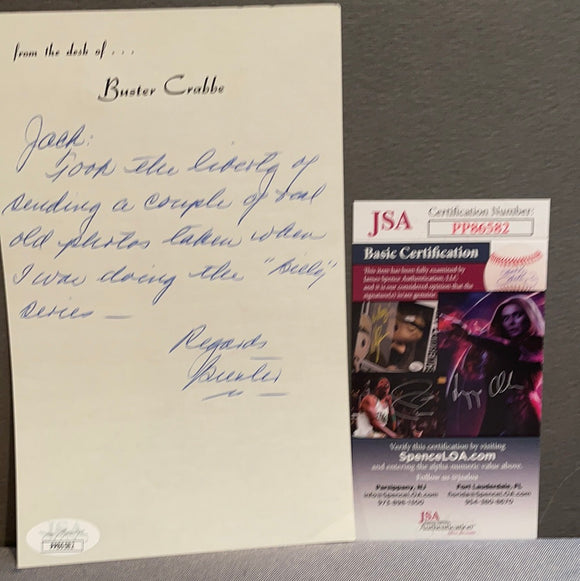 from the desk of . . .
Buster Crabbe
Jack:
Took the liberty of
sending a couple of real
old photos taken when
I was doing the "Billy"
series —
Regards
Buster
PP86582
JSA
Certification Number:
PP86582
Basic Certification
This item has been fully examined by
James Spence Authentication, LLC
and it is our considered opinion that the
signature(s) is/are genuine
Verify this certification by visiting
SpenceLOA.com
and entering the alpha-numeric value above.
Follow us @jsaloa
Parsippany, NJ
info@SpenceLOA.com
973-898-1300
Fort Lauderdale, FL
florida@SpenceLOA.com
954-380-8670
JSA
Authentication